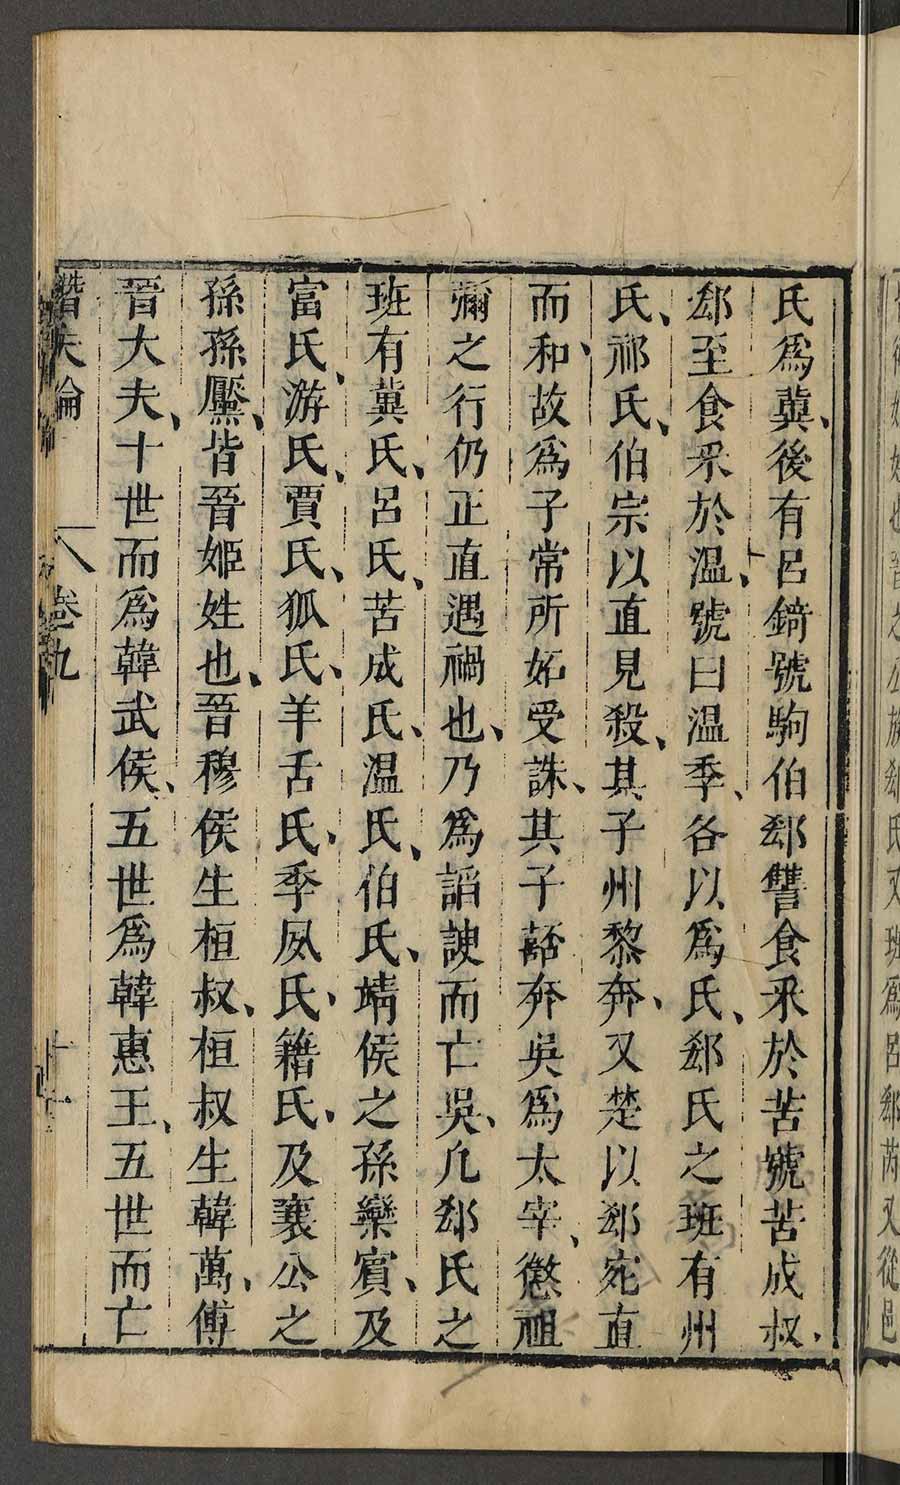 也晉之公族郄氏又班爲呂郄芮又從邑
氏爲冀、後有呂錡號駒伯郄讐食采於苦號苦成叔、
郄至食采於温、號曰温季、各以爲氏、郄氏之班有州
氏、祁氏、伯宗以直見殺、其子州黎奔、又楚以郄宛直
而和、故爲子常所妬受誅、其子嚭奔吳爲太宰、懲祖
彌之行仍正直遇禍也、乃爲謟諛而亡吳、凢郄氏之
班有冀氏、呂氏、苦成氏、温氏、伯氏、靖侯之孫欒賓、及
富氏、游氏、賈氏、狐氏、羊舌氏、季夙氏、籍氏、及襄公之
孫孫黶、皆晉姬姓也、晉穆侯生桓叔、桓叔生韓萬、傅
晉大夫、十世而爲韓武侯、五世爲韓惠王、五世而亡
潛夫論 卷九